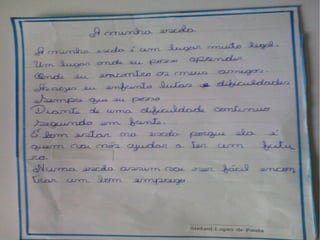 A minha escola
A minha escola é um lugar muito legal.
Um lugar onde eu posso aprender
Onde eu encontro os meus amigos.
As vezes eu enfrento lutas e dificuldades
Sempre que eu posso
Diante de uma dificuldade continuo
seguindo em frente.
É bom estar na escola porque ela é
quem vai nós ajudar a ter um futu
ro.
Numa escola assim vai ser fácil encon
trar um bom emprego.
Stefani Lopes de Paula